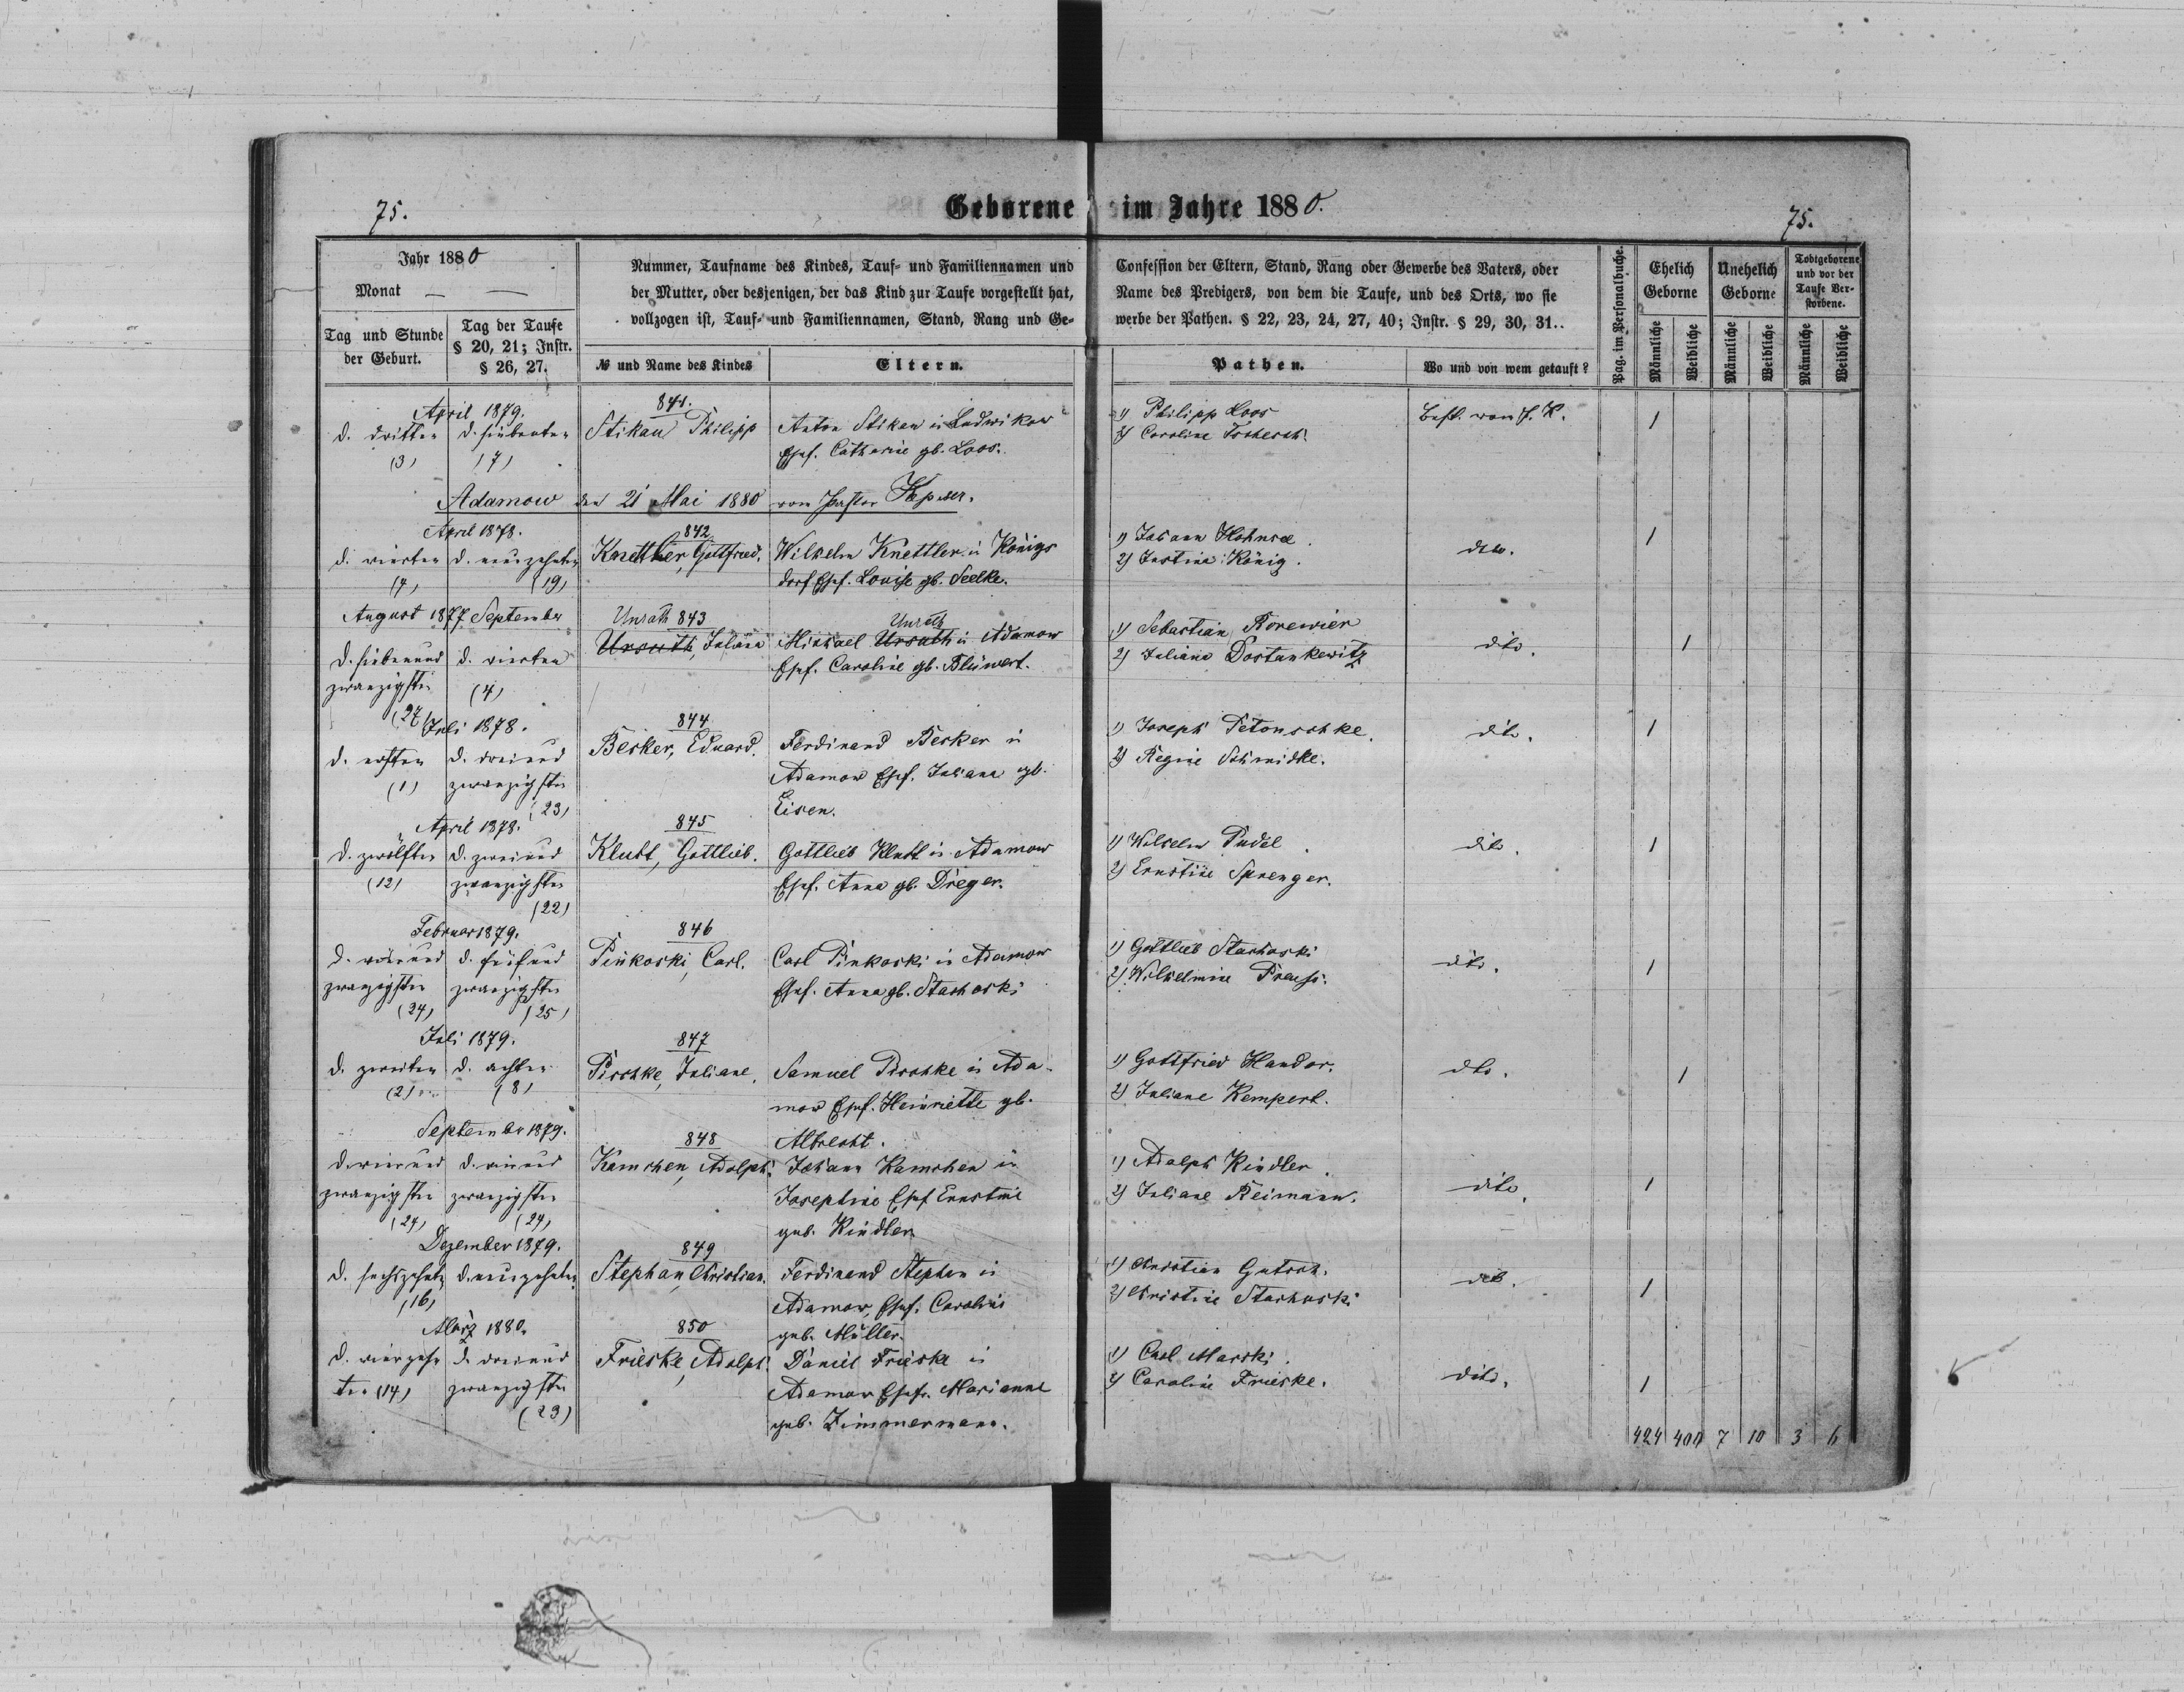 75.
Geborene im Jahre 1880.
75.
Jahr 1880
Monat — —
Tag und Stunde der Geburt.
Tag der Taufe § 20, 21; Instr. § 26, 27.
Nummer, Taufname des Kindes, Tauf- und Familiennamen und
der Mutter, oder desjenigen, der das Kind zur Taufe vorgestellt hat,
vollzogen ist, Tauf- und Familiennamen, Stand, Rang und Ge-
№ und Name des Kindes
Eltern.
Confession der Eltern, Stand, Rang oder Gewerbe des Vaters, oder
Name des Predigers, von dem die Taufe, und des Orts, wo sie
werbe der Pathen. § 22, 23, 24, 27, 40; Instr. § 29, 30, 31..
Pathen.
Wo und von wem getauft?
Pag. im Personalbuche.
Ehelich Geborne
Unehelich Geborne
Todtgeborene und vor der Taufe Verstorbene.
Männliche
Weibliche
Männliche
Weibliche
Männliche
Weibliche
April 1879.
d. dritten
(3)
d. siebenten
(7)
841.
Stikau Philipp
Anton Stikau in Ludwikow
Ehef. Catharine gb. Loos.
1) Philipp Loos
2) Caroline
Best. vom
1
Adamow den 21 Mai 1880 von Pastor
April 1878.
d. vierten
(4)
d. neunzehnten
(19)
842
Knettler, Gottfried.
Wilhelm Knettler in Königs
dorf Ehef. Louise gb. Seelke.
1) Johann Hohnsee
2) Justine König.
dito.
1
August 1877 September
d. siebenund
zwanzigsten
(27)
d. vierten
(4)
Unrath 843
Ursuth, Juliana
Unrath
Michael Ursuth in Adamow
Ehef. Caroline gb. Blüwert.
1) Sebastian Rorewier
2) Juliana Dostankewitz
dito.
1
Juli 1878.
d. ersten
(1)
d. dreiund
zwanzigsten
(23)
844
Besker, Eduard.
Ferdinand Besker in
Adamow Ehef. Juliana gb.
Eisen.
1) Joseph Petonschke.
2) Regine Schmidke.
dito.
1
April 1878.
d. zwölften
(12)
d. zweiund
zwanzigsten
(22)
845
Klutt, Gottlieb.
Gottlieb Klutt in Adamow
Ehef. Anna gb. Dreger.
1) Wilhelm Pudel
2) Ernstine Sprenger.
dito.
1
Februar 1879.
d. vierund
zwanzigsten
(24)
d. fünfund
zwanzigsten
(25)
846
Pinkoski, Carl.
Carl Pinkoski in Adamow
Ehef. Anna gb. Stachoski
1) Gottlieb Stachoski
2) Wilhelmine Preuss.
dito.
1
Juli 1879.
d. zweiten
(2)
d. achten
(8)
847
Pischke, Juliane.
Samuel Pischke in Ada-
mow Ehef. Henriette gb.
Albrecht.
1) Gottfried Handor.
2) Juliane Kempert.
dto.
1
September 1879.
d. vierund
zwanzigsten
(24)
d. vierund
zwanzigsten
(24)
848
Kamchen, Adolph.
Johann Kamchen in
Josephine Ehef Ernstine
geb. Kindler
1) Adolph Kindler.
2) Juliane Reimann.
dito.
1
Dezember 1879.
d. sechszehnten
(16)
d. neunzehnten
849
Stephan, Christian.
Ferdinand Stephan in
Adamow Ehef. Caroline
geb. Müller.
1) Christian Gutsch.
2) Christine Stachoski
dito.
1
März 1880.
d. vierzehn
ten (14)
d. dreiund
zwanzigsten
(23)
850
Frieske, Adolph.
Daniel Frieske in
Adamow Ehefr. Marianne
geb. Zimmermann.
1) Carl Marski.
2) Caroline Frieske.
dito.
1
424 400 7 10 3 6